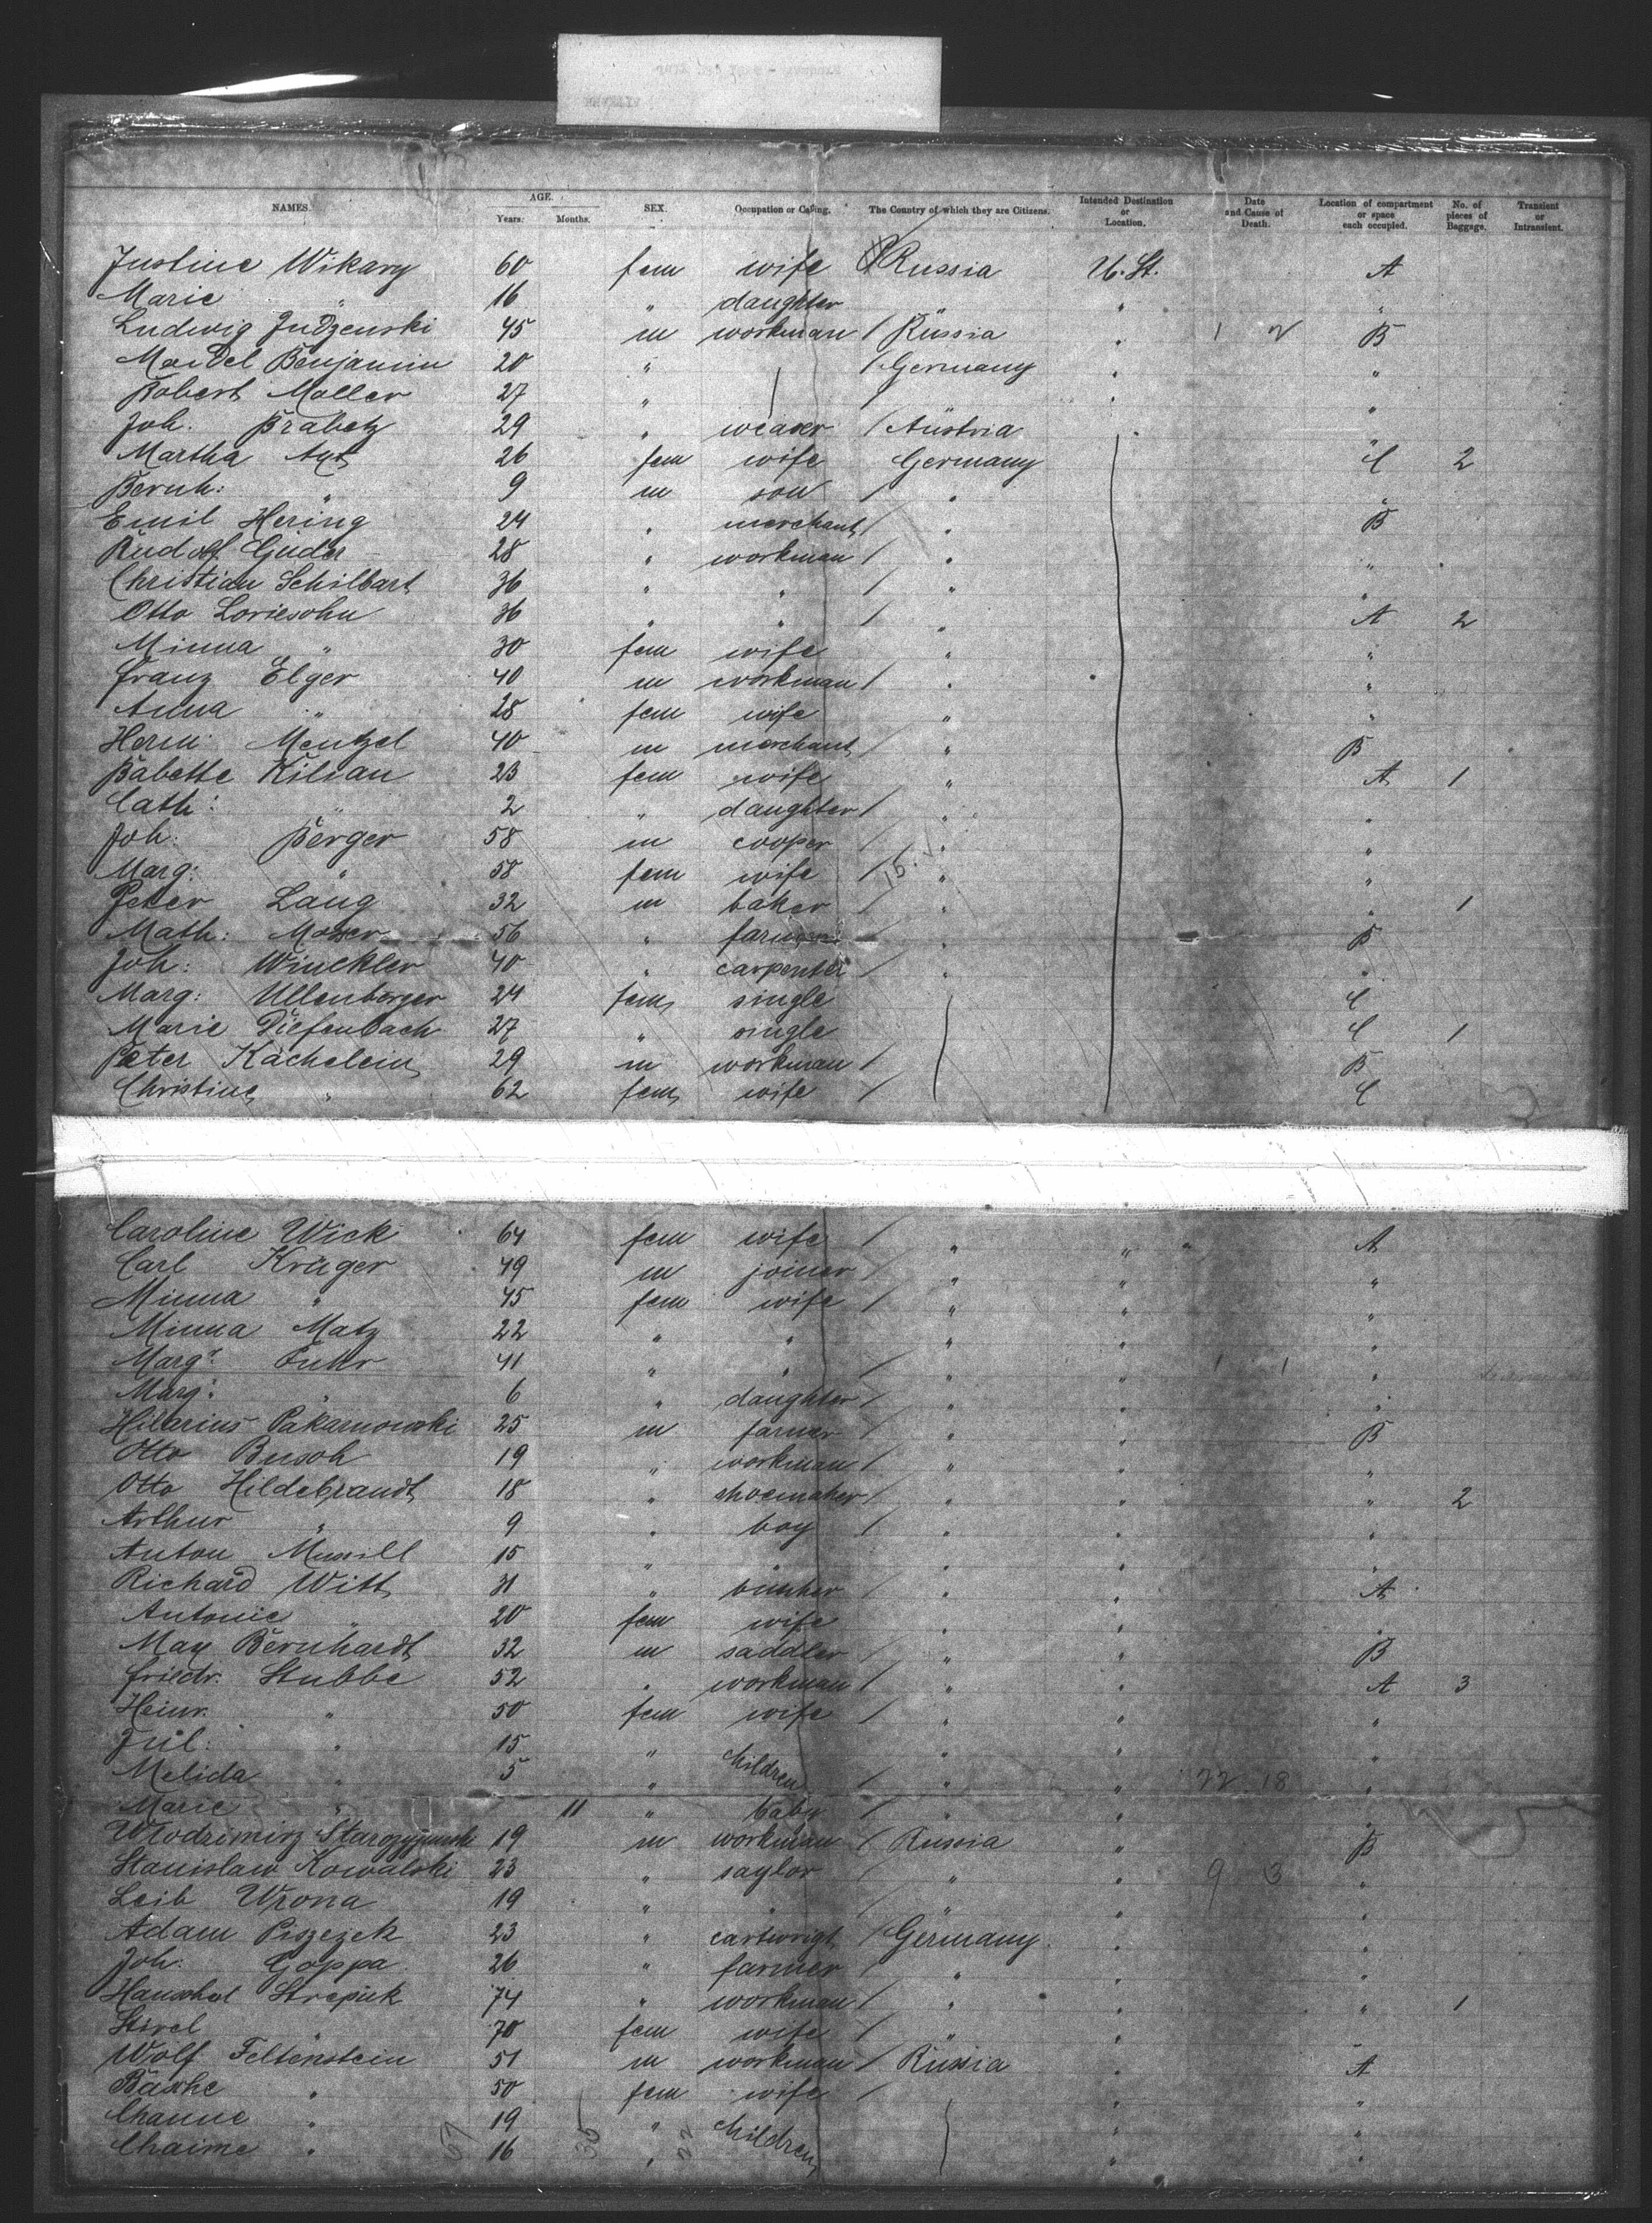 NAMES. AGE. Years. Months. SEX. Occupation or Calling. The Country of which they are Citizens. Intended Destination or Location. Date and Cause of Death. Location of compartment or space each occupied. No. of pieces of Baggage. Transient or Intransient.
Justine Wikary 60 fem wife Russia U. St. A
Marie " 16 " daughter " "
Ludwig Judzenski 45 m workman / Russia " 1 2 B
Mendel Benjamin 20 " / Germany " "
Robert Moller 27 " " "
Joh. Brabetz 29 " weaver / Austria " "
Martha Axt 26 fem wife Germany C 2
Bernh: " 9 m son / " "
Emil Hering 24 " merchant / " B
Rudolf Güder 28 " workman / " "
Christian Schilbart 36 " " / " "
Otto Loriesohn 36 " " / " A 2
Minna " 30 fem wife " "
Franz Elger 40 m workman / " "
Anna " 28 fem wife " "
Herm Mentzel 40 m merchant / " B
Babette Kilian 23 fem wife " A 1
Cath: " 2 " daughter / " "
Joh: Berger 58 m cooper / " "
Marg: " 58 fem wife / 15. " "
Peter Lang 32 m baker / " " 1
Math: Moser 56 " farmer " B
Joh: Winckler 40 " carpenter / " "
Marg: Ullenberger 24 fem single C
Marie Diefenbach 27 " single C 1
Peter Kächelein 29 m workman / B
Christine " 62 fem wife / C
Caroline Wick 64 fem wife / " " A
Carl Krüger 49 m joiner / " " "
Minna " 45 fem wife / " " "
Minna Matz 22 " " " " "
Marg: Fuhr 41 " " / " " 1 1 "
Marg: " 6 " daughter / " " "
Hilarius Pakarnowski 25 m farmer / " " B
Otto Busch 19 " workman / " " "
Otto Hildebrandt 18 " shoemaker / " " " 2
Arthur " 9 " boy / " " "
Anton Mussill 15 " " " " "
Richard Witt 31 " / " " A
Antonie " 20 fem wife " " "
Max Bernhardt 32 m saddler / " " B
Friedr. Stubbe 52 " workman / " " A 3
Heinr. " 50 fem wife / " " "
Jul: " 15 " children " " "
Melida " 5 " / " " 22 18 "
Marie " 11 " baby / " " "
Wlodzimirz Starozyjunski 19 m workman / Russia " B
Stanislaw Kowalski 23 " saylor / " " 9 3 "
Leib Wrona 19 " " / " " "
Adam Piszezek 23 " cartwrigt / Germany " "
Joh: Goppa 26 " farmer / " " "
Hanschel Strepuk 74 " workman / " " " 1
Stirel " 70 fem wife / " " "
Wolf Feltenstein 51 m workman / Russia " A
Basche " 50 fem wife / " "
Channe " 19 " children " "
Chaime " 16 " " "